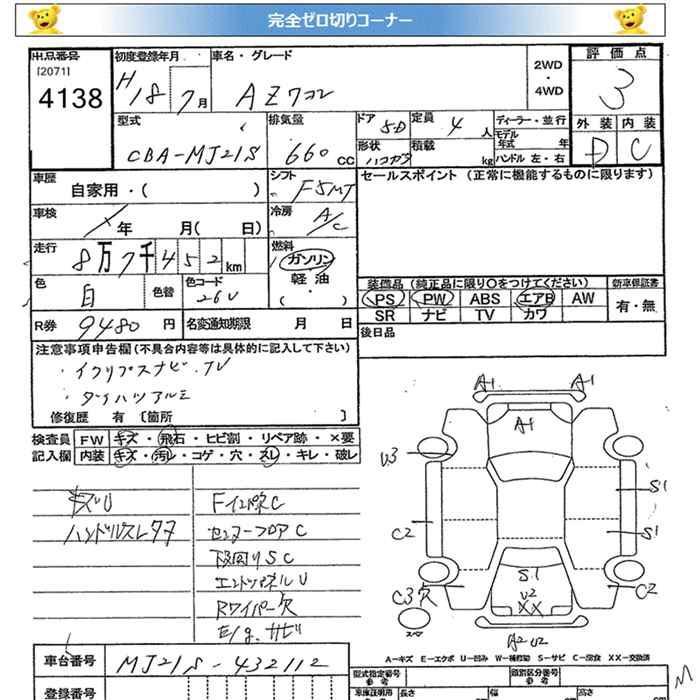 完全ゼロ切りコーナー
出品番号 初度登録年月 車名・グレード 2WD・4WD 評価点
[2071]
4138 H18 7月 AZワゴン 3
型式 排気量 ドア 5D 定員 4人 ディーラー・並行 外装 内装
CBA-MJ21S 660cc 形状 積載 kg モデル年式 年 D C
ハンドル 左・右
車歴 自家用・( ) シフト F5MT セールスポイント (正常に機能するものに限ります)
車検 年 月( 日) 冷房 A/C
走行 8万7千452km 燃料 ガソリン 軽・油 ・( )
色 白 色替 色コード 26U 装備品 (純正品に限り○をつけてください) 新車保証書
PS PW ABS エアB AW 有・無
SR ナビ TV カワ
R券 9480円 名変通知期限 月 日 後日品
注意事項申告欄(不具合内容等は具体的に記入して下さい)
・イクリプスナビ.TV
・ダイハツアルミ
修復歴 有 〔箇所 〕
検査員 FW キズ・飛石・ヒビ割・リペア跡・×要
記入欄 内装 キズ・汚レ・コゲ・穴・スレ・キレ・破レ
FインパネC
ハンドルスレ
センターフロアC
下回りSC
エンドパネルU
Rワイパー欠
E/g.サビ
A1 A1
A1
U3 S1
C2 S1
S1
C3穴 U2 C2
XX
スペア
A2 U2
A-キズ E-エクボ U-凹み W-補修跡 S-サビ C-腐食 XX-交換済
車台番号 MJ21S-432112 型式指定番号 参考 類別区分番号 参考
登録番号 車庫証明用 長さ 幅 高さ